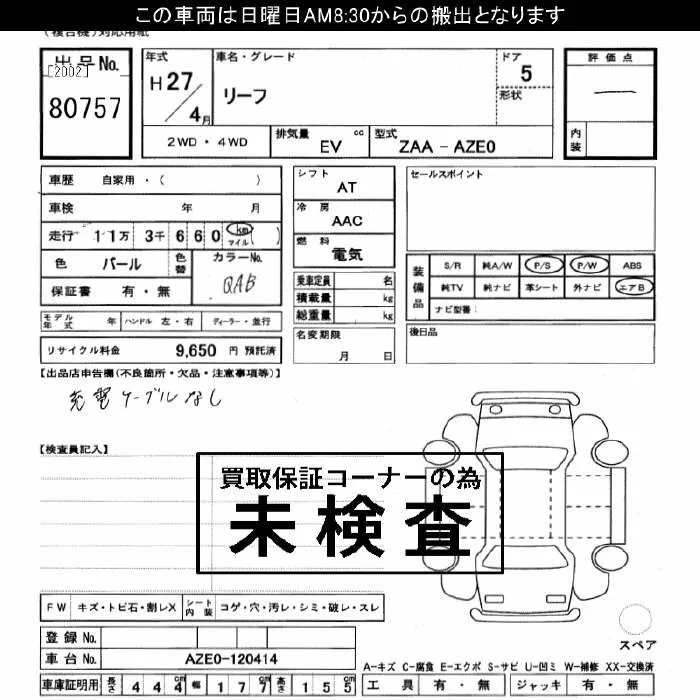 この車両は日曜日AM8:30からの搬出となります
出品No.
[2002]
80757
年式
H27/4月
車名・グレード
リーフ
ドア
5
形状
評価点
—
内装
2WD・4WD
排気量 cc
EV
型式
ZAA - AZE0
車歴 自家用・( )
車検 年 月
走行 11万 3千 660 km マイル ( )
色 パール
色替
カラーNo.
QAB
保証書 有・無
シフト
AT
冷房
AAC
燃料
電気
乗車定員 名
積載量 kg
総重量 kg
名変期限
月 日
セールスポイント
装備品
S/R 純A/W P/S P/W ABS
純TV 純ナビ 革シート 外ナビ エアB
ナビ型番:
後日品
モデル年式 年 ハンドル 左・右 ディーラー・並行
リサイクル料金 9,650 円 預託済
【出品店申告欄(不良箇所・欠品・注意事項等)】
充電ケーブルなし
【検査員記入】
買取保証コーナーの為
未検査
FW キズ・トビ石・割レX シート内装 コゲ・穴・汚レ・シミ・破レ・スレ
登録No.
車台No. AZE0-120414
スペア
A-キズ C-腐食 E-エクボ S-サビ U-凹ミ W-補修 XX-交換済
車庫証明用 長さ 444cm 幅 177cm 高さ 155cm
工具 有・無 ジャッキ 有・無